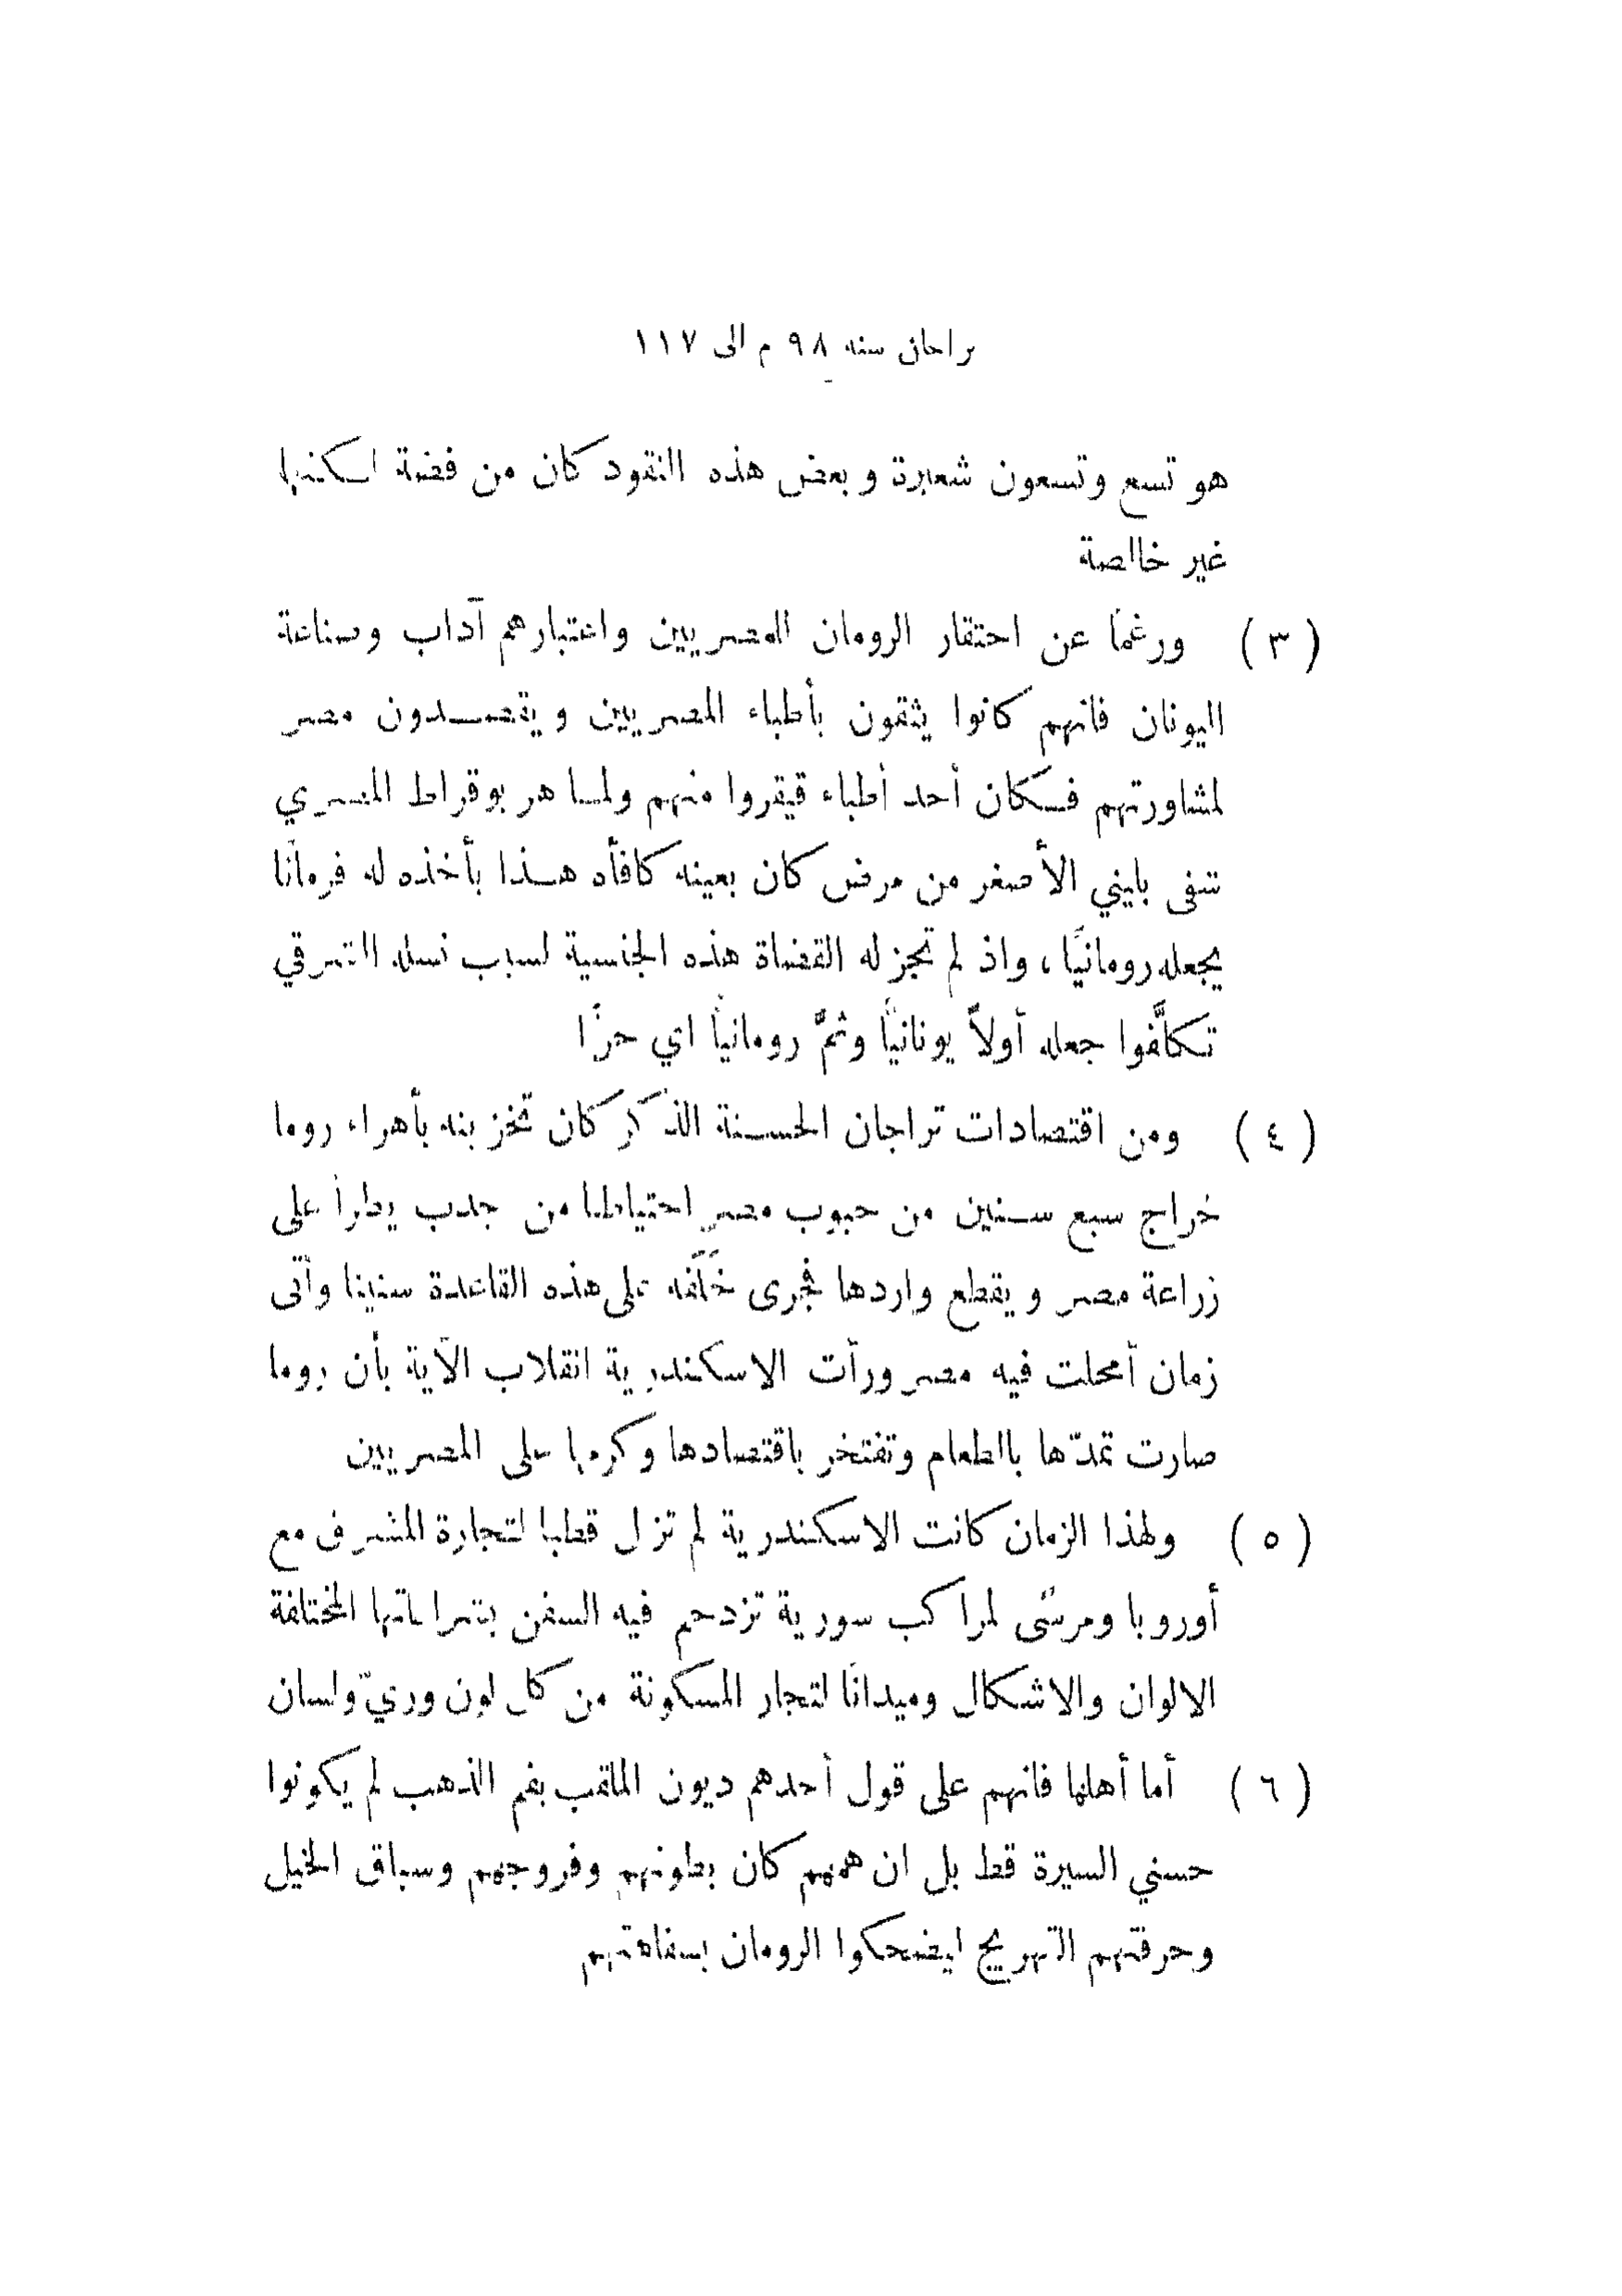 تراجان سنه ٩٨ م الى ١١٧
هو تسع وتسعون شعيرة وبعض هذه النقود كان من فضة لكنها
غير خالصة
( ٣ ) ورغمًا عن احتقار الرومان للمصريين واعتبارهم آداب وصناعة
اليونان فانهم كانوا يثقون بأطباء المصريين ويقصدون مصر
لمشاورتهم فكان أحد أطباء قيقروا منهم ولما هر بوقراط المصري
شفى بليني الأصغر من مرض كان بعينه كافأه هذا بأخذه له فرمانًا
يجعله رومانيًا، واذ لم تجز له القضاة هذه الجنسية لسبب نسله الشرقي
تكلَّفوا جعله أولاً يونانيًا وثمَّ رومانيًا اي حرًا
( ٤ ) ومن اقتصادات تراجان الحسنة الذكر كان تخزينه بأهراء روما
خراج سبع سنين من حبوب مصر احتياطا من جدب يطرأ على
زراعة مصر ويقطع واردها فجرى خَلَفه على هذه القاعدة سنينا وأتى
زمان أمحلت فيه مصر ورأت الاسكندرية انقلاب الآية بأن روما
صارت تمدّها بالطعام وتفتخر باقتصادها وكرمها على المصريين
( ٥ ) ولهذا الزمان كانت الاسكندرية لم تزل قطبا لتجارة المشرق مع
أوروبا ومرسًى لمراكب سورية تزدحم فيه السفن بشراعاتها المختلفة
الالوان والاشكال وميدانًا لتجار المسكونة من كل لون وزيّ ولسان
( ٦ ) أما أهلها فانهم على قول أحدهم ديون الملقب بفم الذهب لم يكونوا
حسني السيرة قط بل ان همهم كان بطونهم وفروجهم وسباق الخيل
وحرفتهم التهريج ليضحكوا الرومان بسفاهتهم